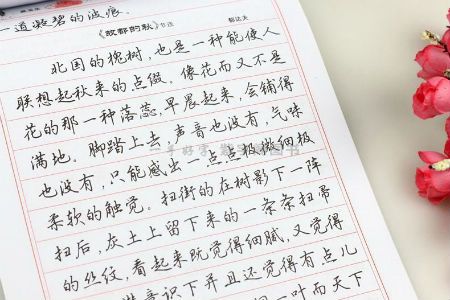 一道凝碧的波痕。
《故都的秋》节选 郁达夫
北国的槐树，也是一种能使人
联想起秋来的点缀。像花而又不是
花的那一种落蕊，早晨起来，会铺得
满地。脚踏上去，声音也没有，气味
也没有，只能感出一点点极微细极
柔软的触觉。扫街的在树影下一阵
扫后，灰土上留下来的一条条扫帚
的丝纹，看起来既觉得细腻，又觉得
意识下并且还觉得有点儿
一叶而天下